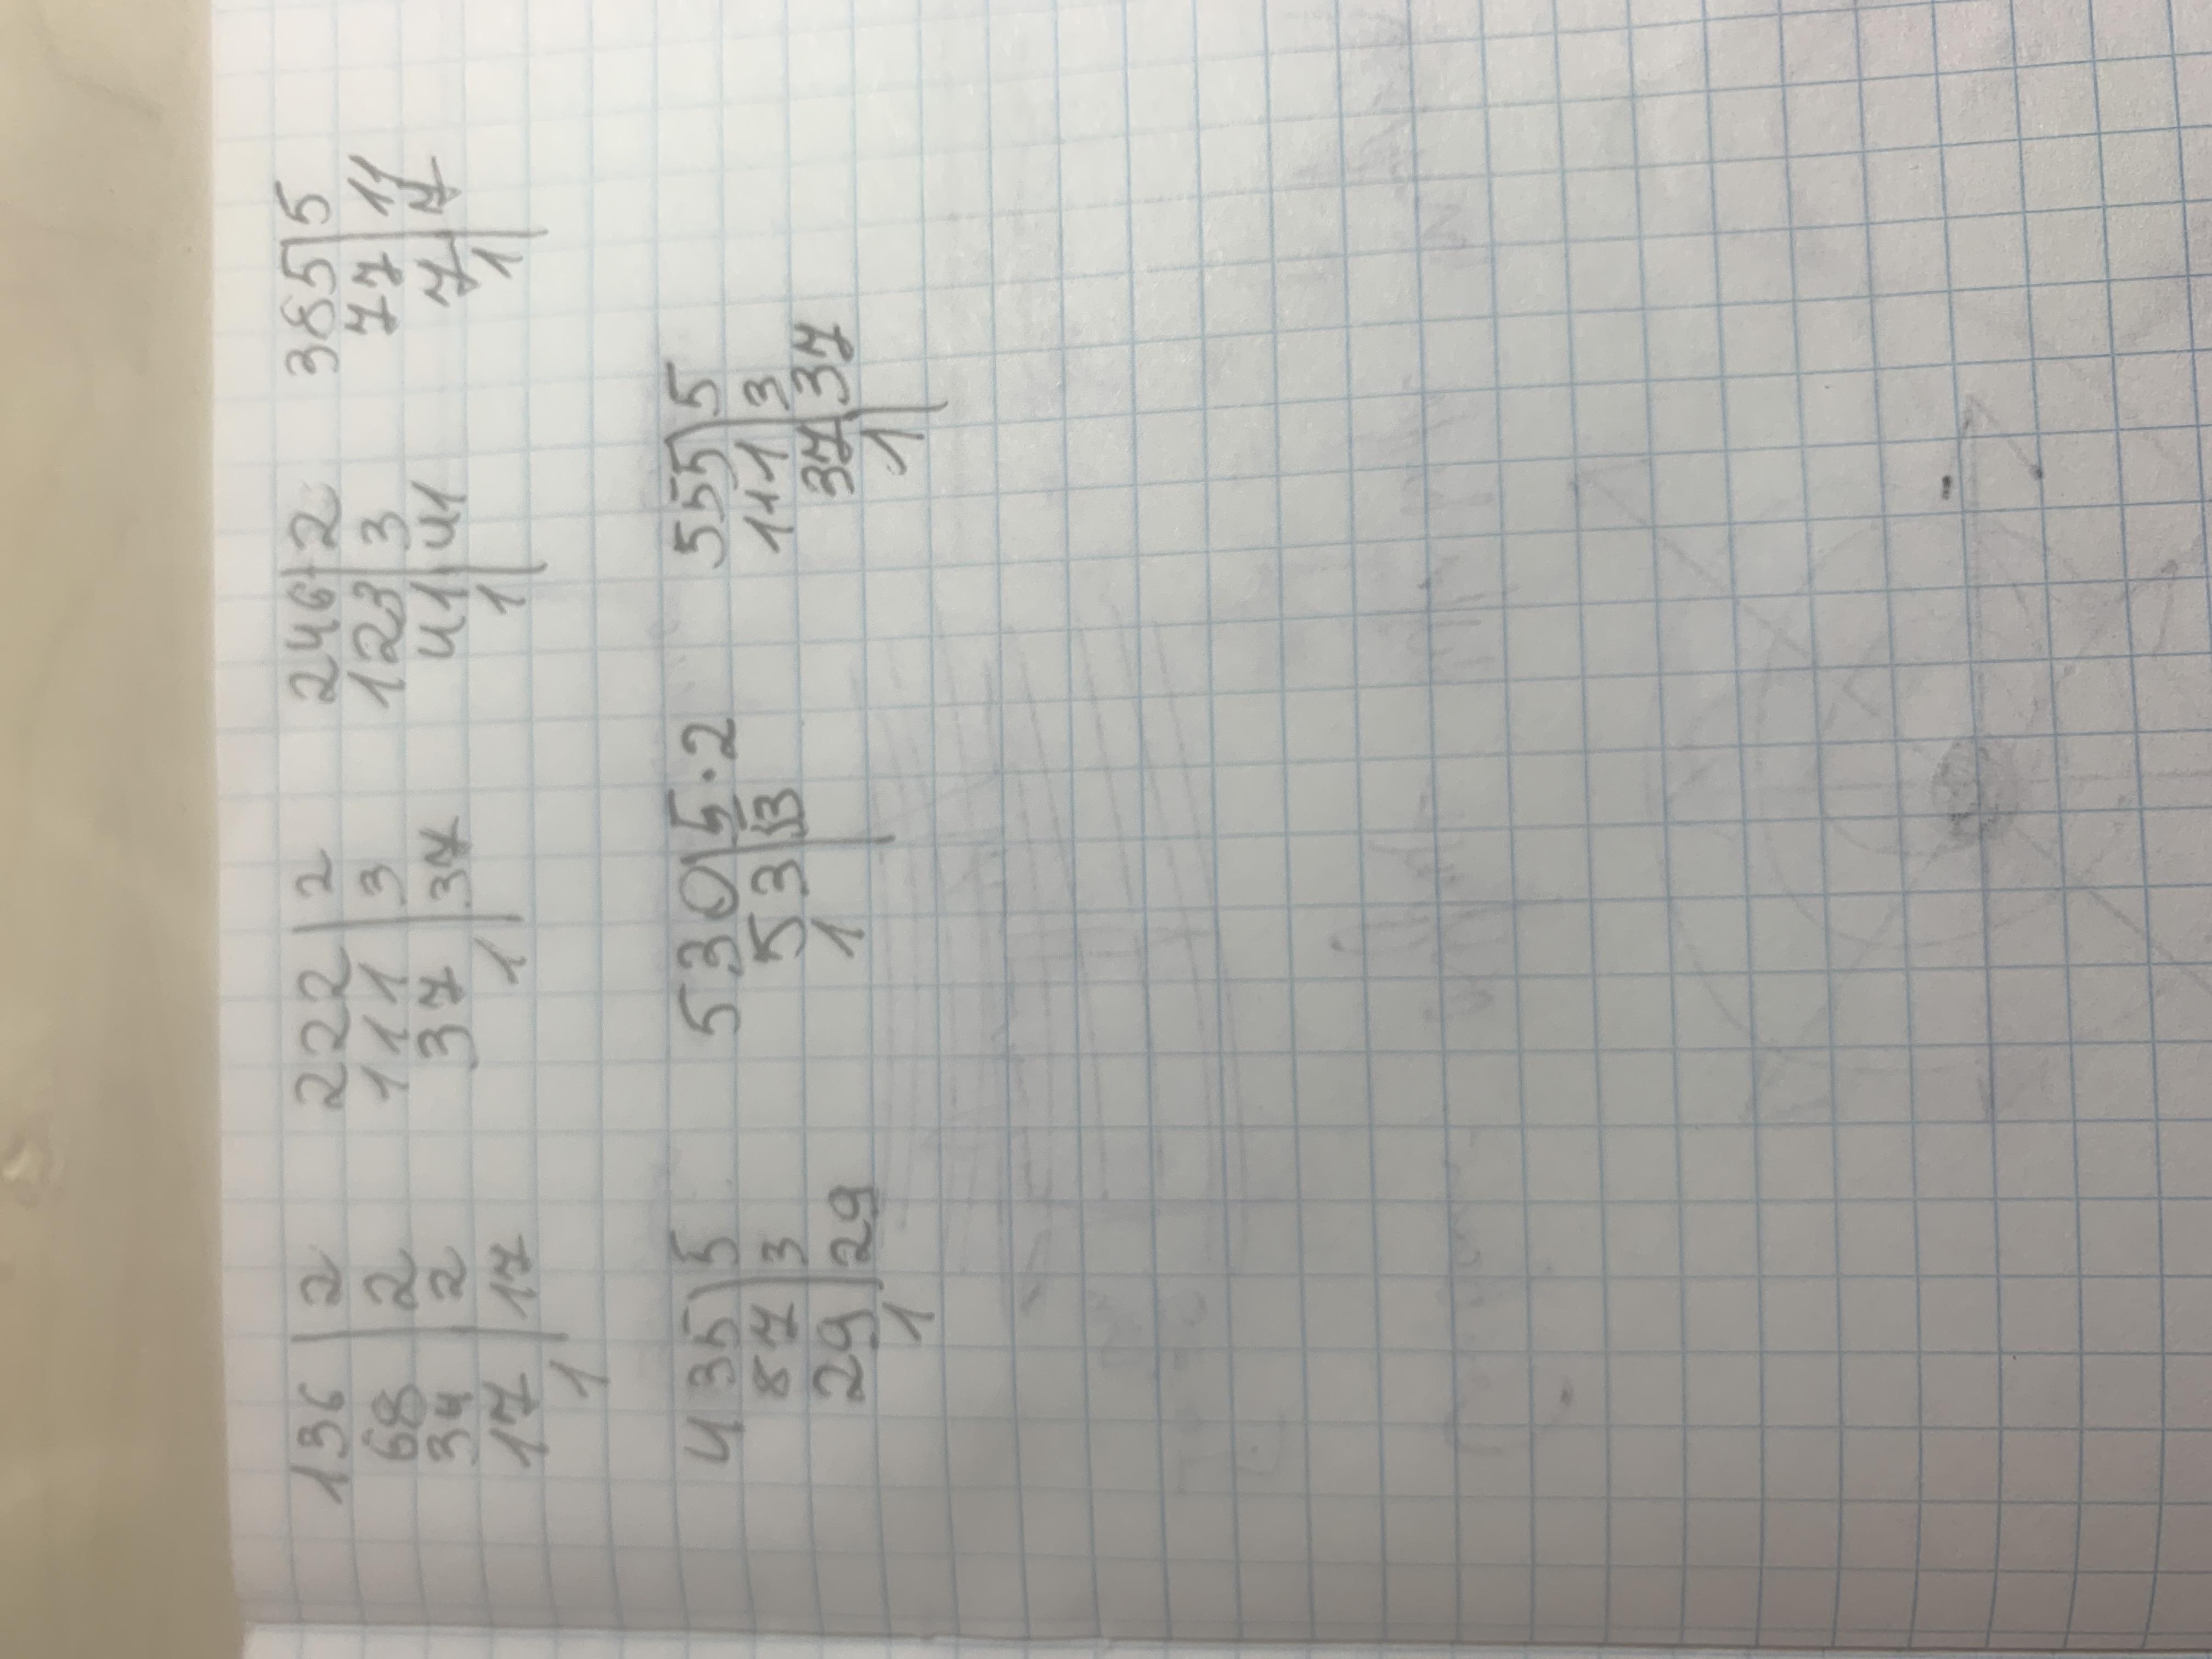 136 | 2 222 | 2 246 | 2 385 | 5
68 | 2 111 | 3 123 | 3 77 | 11
34 | 2 37 | 37 41 | 41 7 | 7
17 | 17 1 | 1 | 1 |
1 |
435 | 5 530 | 5·2 555 | 5
87 | 3 53 | 53 111 | 3
29 | 29 1 | 37 | 37
1 1 |